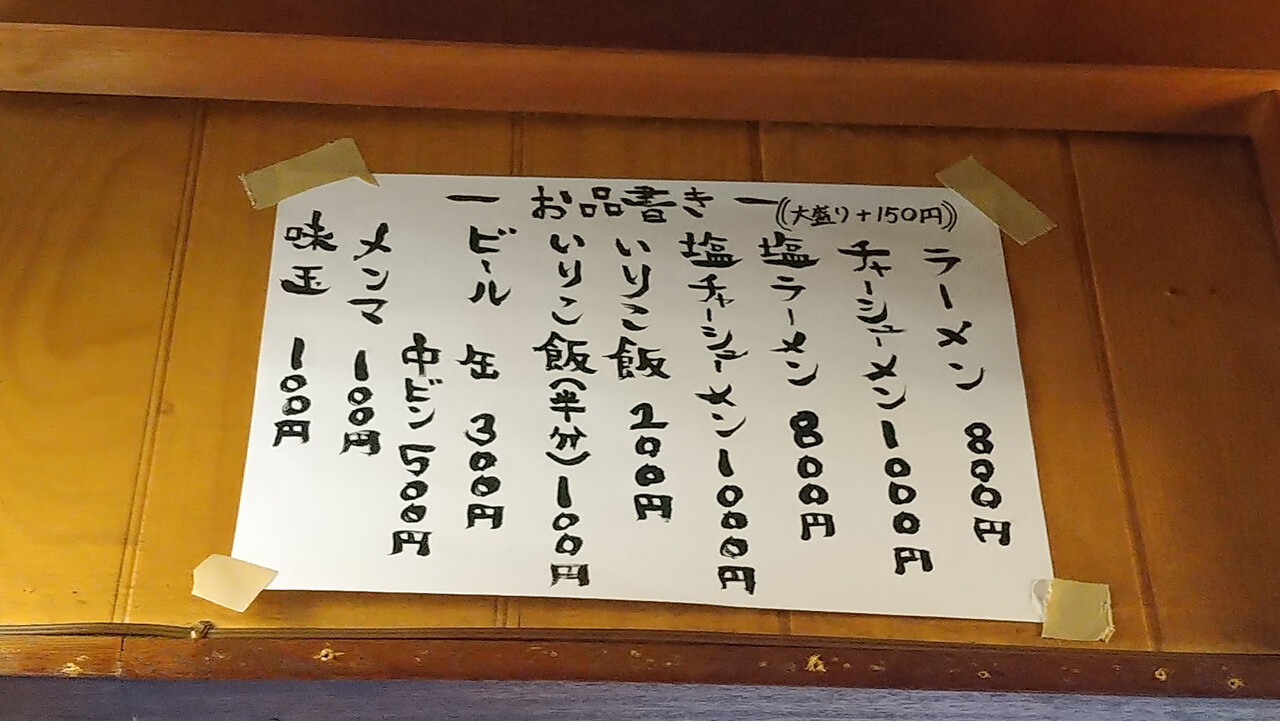 ー お品書き ー
((大盛り+150円))
ラーメン 800円
チャーシューメン 1000円
塩ラーメン 800円
塩チャーシューメン 1000円
いりこ飯 200円
いりこ飯(半分) 100円
ビール 缶 300円
中ビン 500円
メンマ 100円
味玉 100円